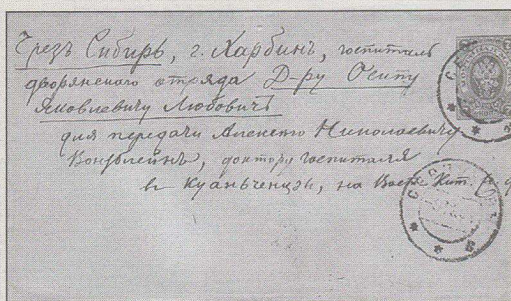 Чрезъ Сибирь, г. Харбинъ, госпиталь
дворянскаго отряда Д-ру Осипу
Яковлевичу Любовичъ
для передачи Николаевичу
доктору госпиталя
въ Куаньченцзы, на Вост. Кит. ж. д.